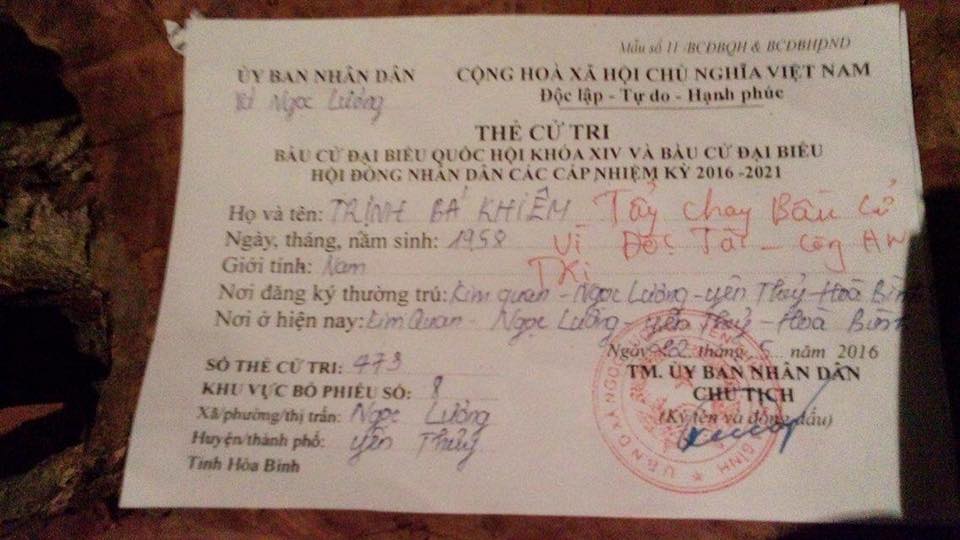 Mẫu số 11 /BCĐBQH & BCĐBHĐND
ỦY BAN NHÂN DÂN
Xã Ngọc Lương
CỘNG HOÀ XÃ HỘI CHỦ NGHĨA VIỆT NAM
Độc lập - Tự do - Hạnh phúc
THẺ CỬ TRI
BẦU CỬ ĐẠI BIỂU QUỐC HỘI KHÓA XIV VÀ BẦU CỬ ĐẠI BIỂU
HỘI ĐỒNG NHÂN DÂN CÁC CẤP NHIỆM KỲ 2016 -2021
Họ và tên: TRỊNH BÁ KHIÊM
Tẩy chay Bầu cử
Ngày, tháng, năm sinh: 1958
Vì Độc Tài - Công AN
Giới tính: Nam
Nơi đăng ký thường trú: Kim Quan - Ngọc Lương - Yên Thủy - Hoà Bình
Nơi ở hiện nay: Kim Quan - Ngọc Lương - Yên Thủy - Hoà Bình
Ngày 22 tháng 5 năm 2016
SỐ THẺ CỬ TRI: 473
TM. ỦY BAN NHÂN DÂN
KHU VỰC BỎ PHIẾU SỐ: 8
CHỦ TỊCH
Xã/phường/thị trấn: Ngọc Lương
(Ký tên và đóng dấu)
Huyện/thành phố: Yên Thủy
Tỉnh Hòa Bình